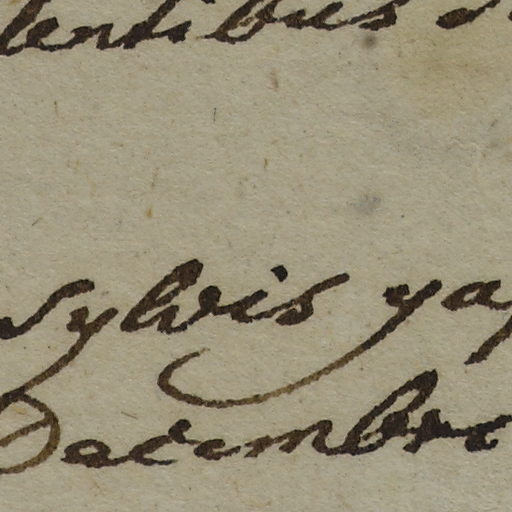 lentibus
sylvis yap
Dacembri